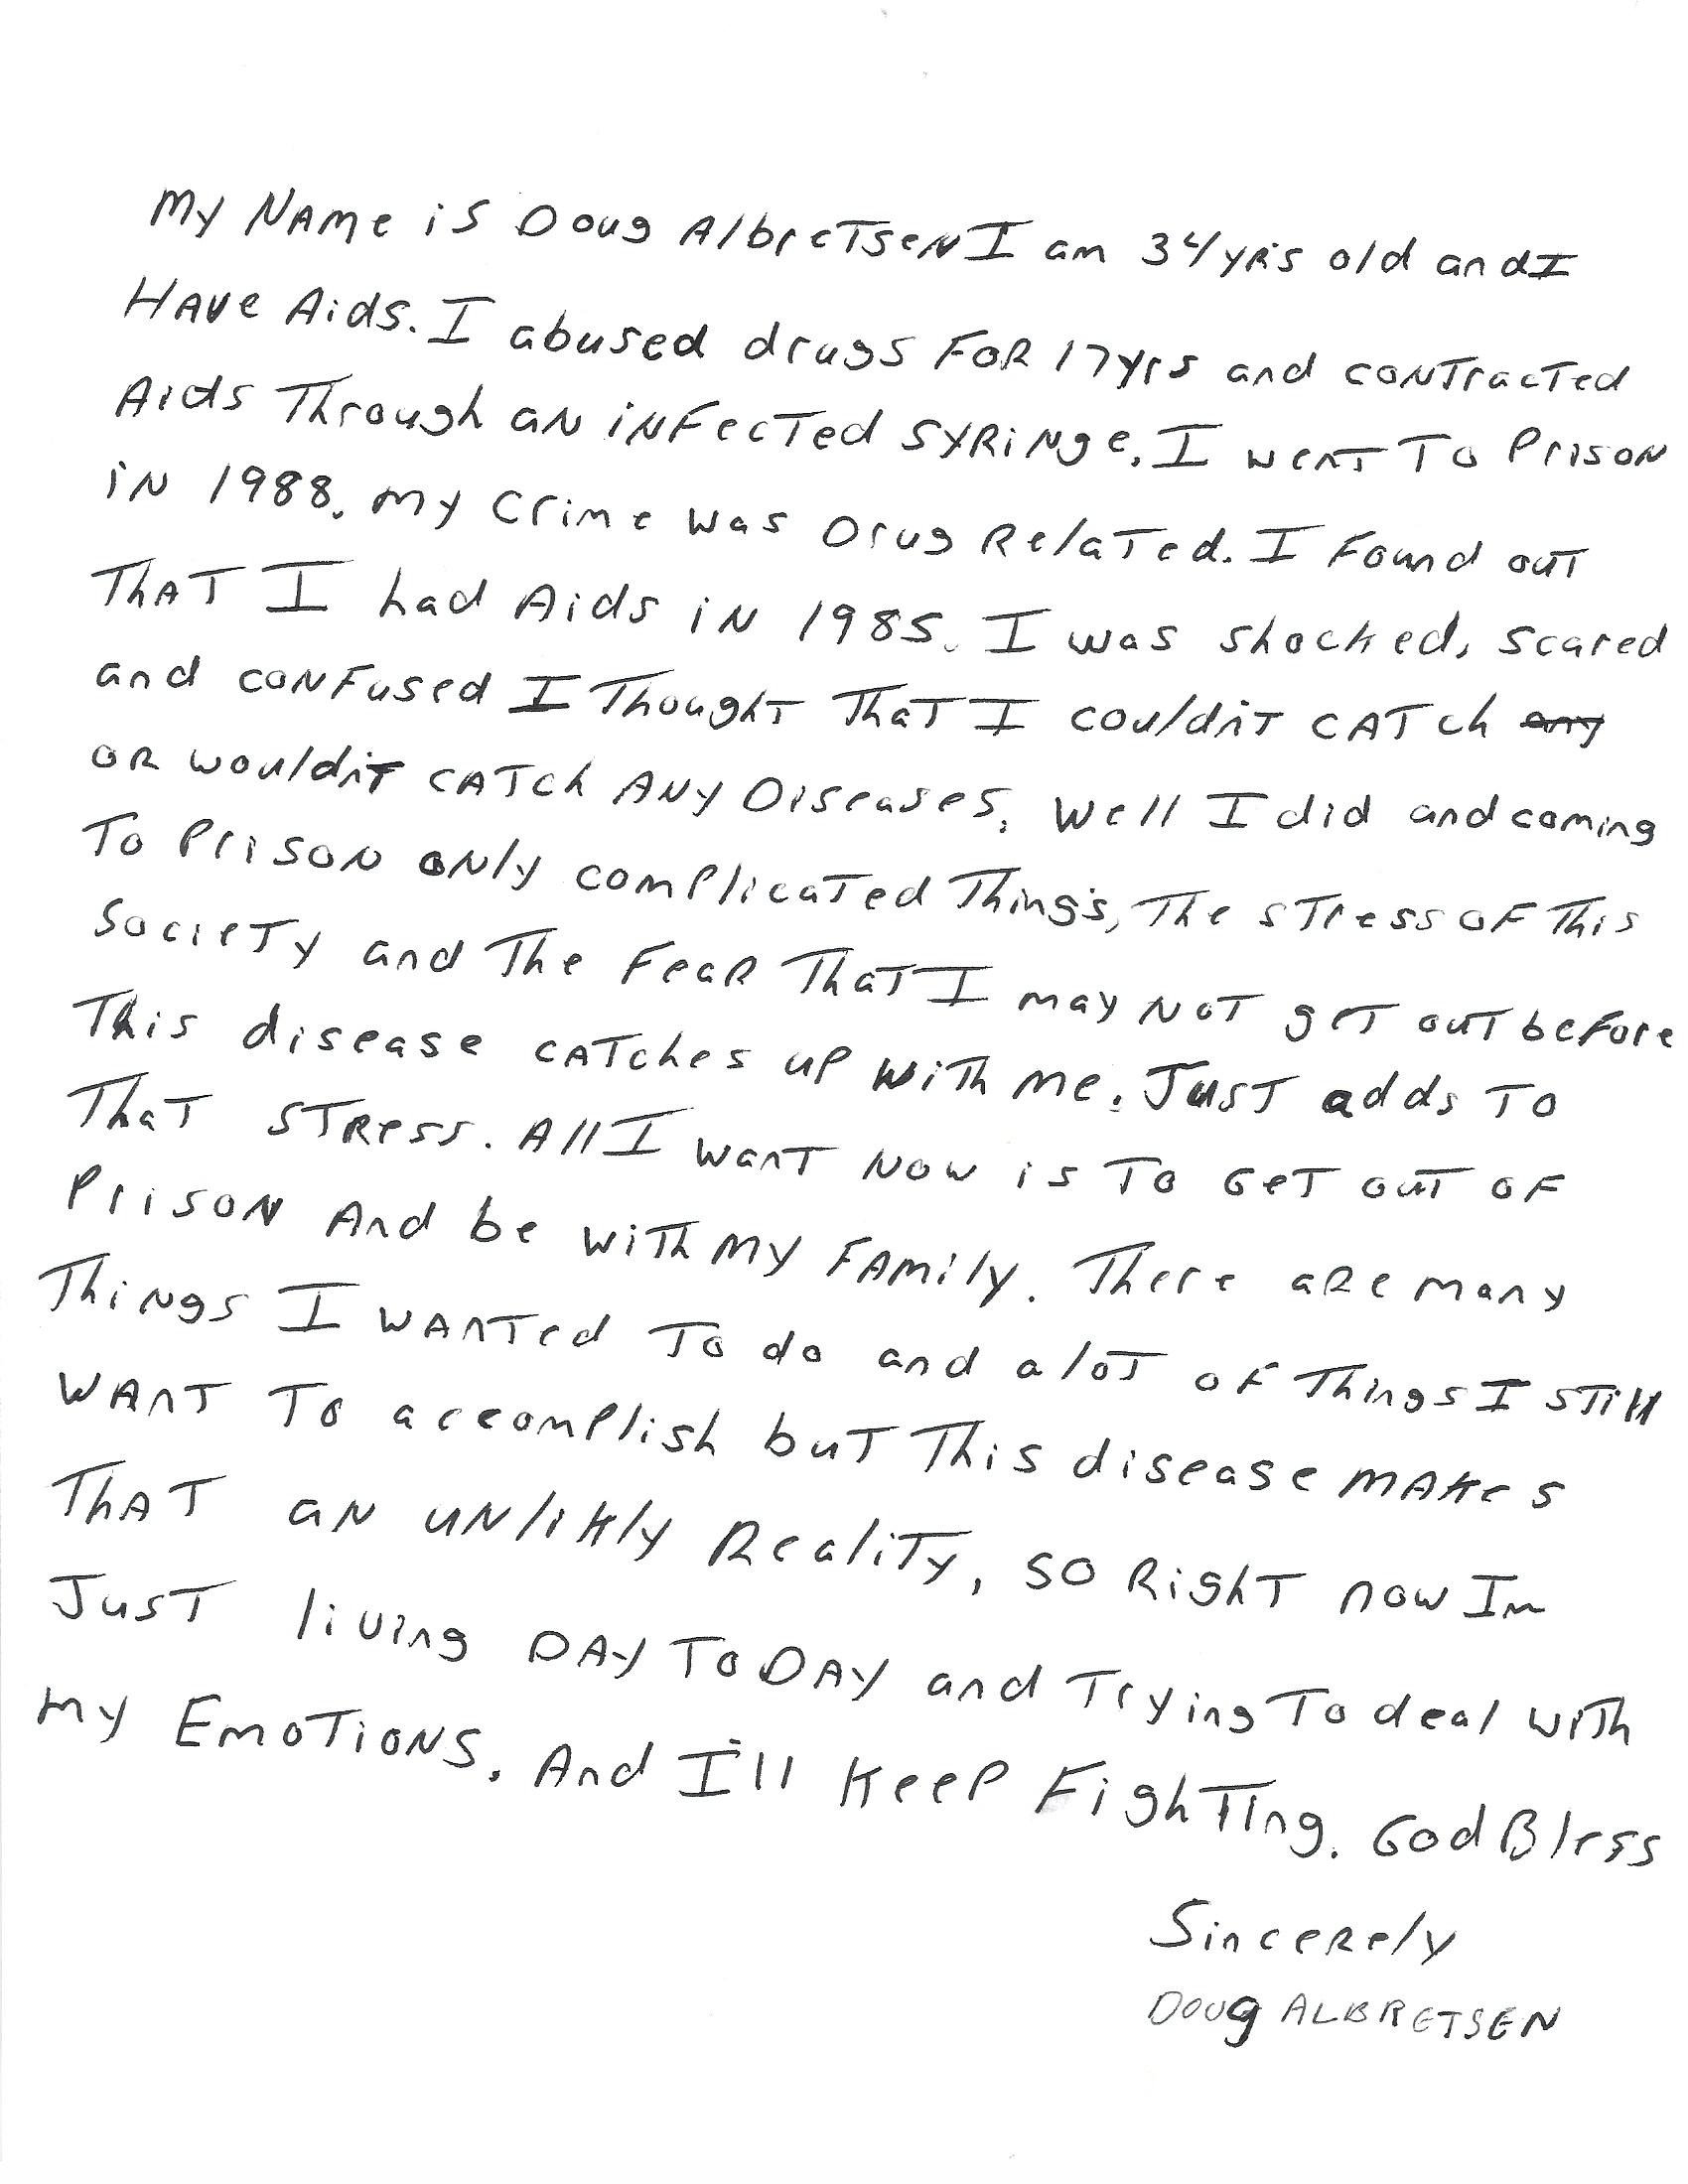 My Name is Doug Albretsen I am 34 yrs old and I
Have Aids. I abused drugs For 17 yrs and contracted
Aids Through an infected syringe. I went To Prison
in 1988. My crime was Drug Related. I Found out
That I had Aids in 1985. I was shocked, scared
and confused I Thought That I couldn't catch any
or wouldn't catch any Diseases. Well I did and coming
To Prison only complicated Things, The stress of This
Society and The Fear That I may Not get out before
This disease catches up with me. Just adds To
That stress. All I want Now is To Get out of
Prison And be with my Family. There are many
Things I wanted To do and a lot of Things I still
want To accomplish but This disease makes
That an unlikly Reality, so Right now Im
Just living Day To Day and Trying To deal with
my Emotions. And I'll Keep Fighting. God Bless
Sincerely
Doug ALBRETSEN